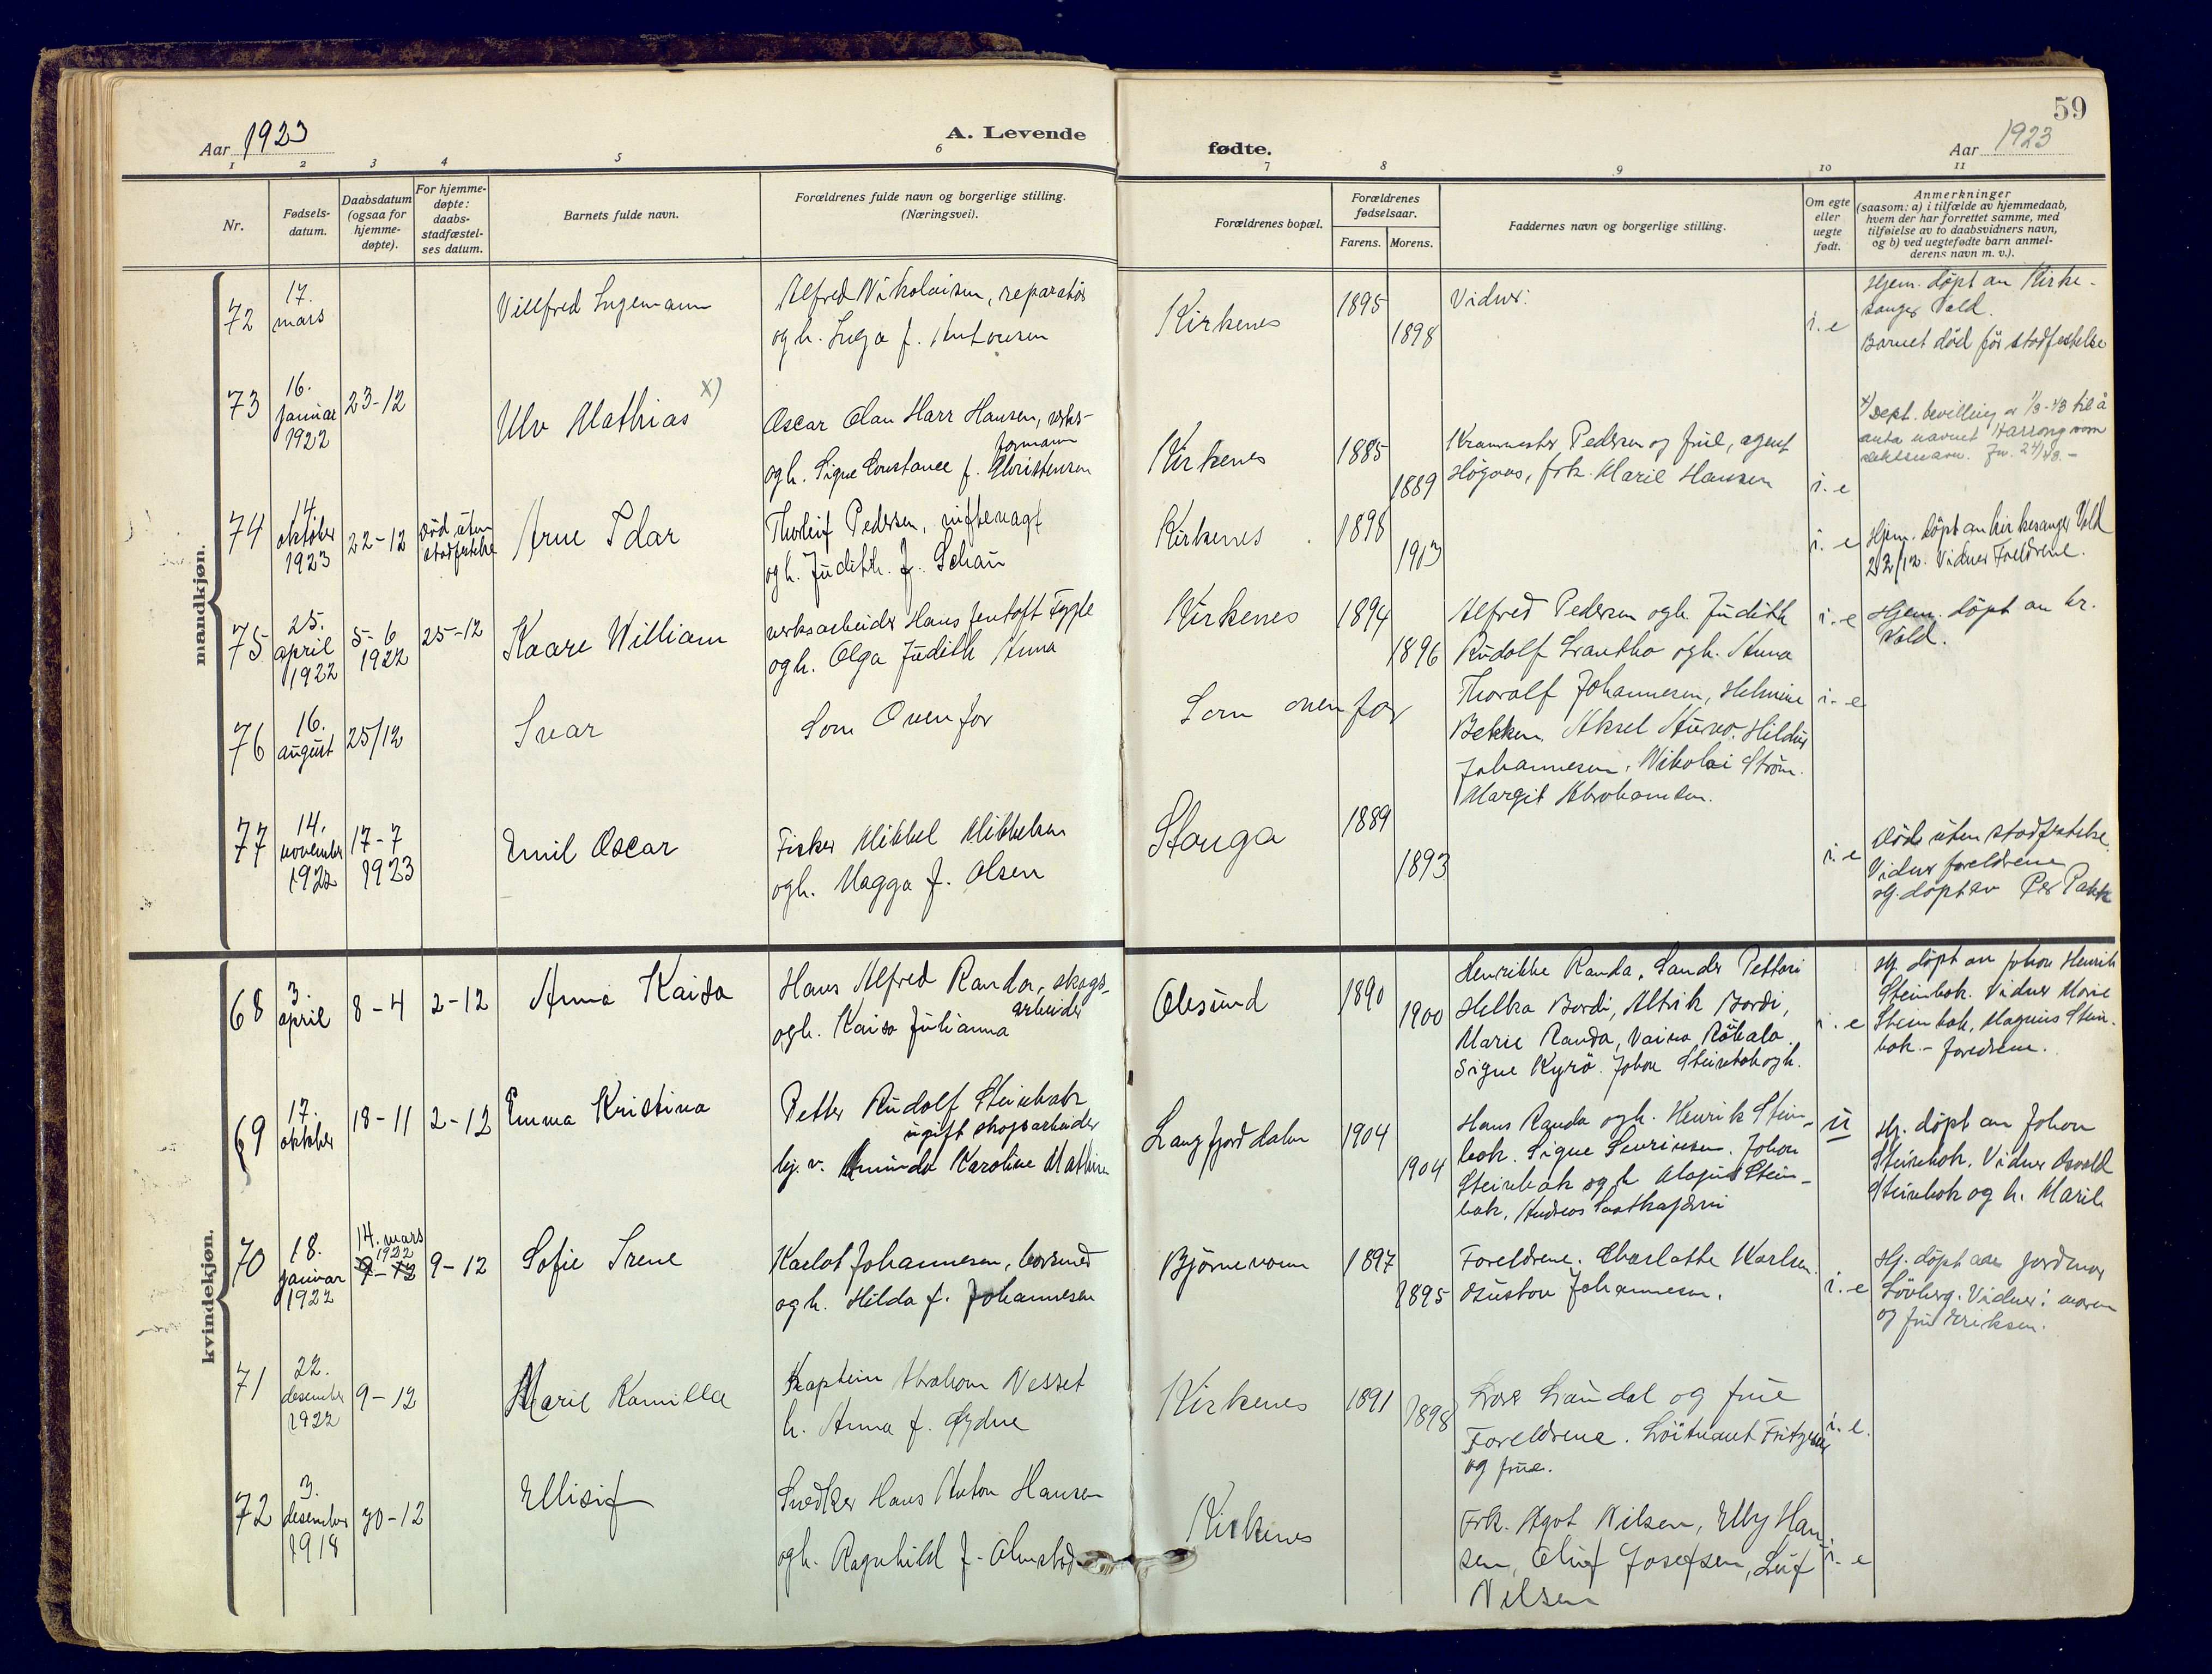 59
Aar 1923
A. Levende
fødte.
Aar 1923
1 2 3 4 5 6 7 8 9 10 11
Nr.
Fødsels-
datum.
Daabsdatum
(ogsaa for
hjemme-
døpte).
For hjemme-
døpte:
daabs-
stadfæstel-
ses datum.
Barnets fulde navn.
Forældrenes fulde navn og borgerlige stilling.
(Næringsvei).
Forældrenes bopæl.
Forældrenes
fødselsaar.
Farens. Morens.
Faddernes navn og borgerlige stilling.
Om egte
eller
uegte
født.
Anmerkninger
(saasom: a) i tilfælde av hjemmedaab,
hvem der har forrettet samme, med
tilføielse av to daabsvidners navn,
og b) ved uegtefødte barn anmel-
derens navn m. v.).
mandkjøn.
72
17.
mars
Villfred Ingemann
Alfred Nikolaisen, reparatør
og h. Inga f. Antonsen
Kirkenes
1895
1898
Vidner:
i. e
Hjem. døpt av Kirke-
sanger Vold.
Barnet död för stadfestelse
73
16.
januar
1922
23-12
Ulv Mathias x)
Oscar Olan Harr Hansen, verks-
formann
og h. Signe Constance f. Christensen
Kirkenes
1885
1889
Pedersen og frue, agent
frk. Marie Hansen
i. e
x) Dept. bevilling av 1/3-43 til å
anta navnet som
slektsnavn.
74
14
oktober
1923
22-12
död uten
stadfestelse
Arne Idar
Thorleif Pedersen,
og h. Judith. f. Schau
Kirkenes
1898
1903
i. e
Hjem. døpt av kirkesanger Vold
22/12. Vidner Foreldrene.
75
25.
april
1922
5-6
1922
25-12
Kaare William
verksarbeider Hans Jentoft Fygle
og h. Olga Judith Anna
Kirkenes
1894
1896
Alfred Pedersen og h. Judith
Rudolf og h. Anna
i. e
Hjem. døpt av kr.
Vold.
76
16.
august
25/12
Ivar
Som Ovenfor
Som ovenfor
Thoralf Johannesen, Helmine
Bekken. Aksel Hildur
Johannesen. Nikolai Ström.
Margit Abrahamsen.
i. e
77
14.
november
1922
17-7
1923
Emil Oscar
Fisker Mikkel Mikkelsen
og h. Magga f. Olsen
Stonga
1889
1893
i. e
Död uten stadfestelse.
Vidner foreldrene
Hj. døpt av Per
kvindekjøn.
68
3.
april
8-4
2-12
Anna Kaisa
Hans Alfred Randa, skogs-
arbeider
og h. Kaisa Julianna
Olesund
1890
1900
Henrikke Randa. Sander Pettari
Helka Bordi, Bordi,
Marie Randa, Vaino
Signe Kyrö. Johan Steinbak og h.
i. e
Hj. døpt av Johan Henrik
Steinbak. Vidner Marie
Steinbak, Magnus Stein-
bak. - foreldrene.
69
17.
oktober
18-11
2-12
Emma Kristina
Petter Rudolf Steinbak
ugift skogsarbeider
Karoline Mathine
Langfjorddalen
1904
1904
Hans Randa og h. Henrik Stein-
bak. Signe Severinsen. Johan
Steinbak og h Magnus Stein-
bak. Andreas
u
Hj. døpt av Johan
Steinbak. Vidner Osvald
Steinbak og h. Marie
70
18.
januar
1922
14. mars
1922
9-12
9-12
Sofie Irene
Karlot Johannesen,
og h. Hilda f. Johannesen
Bjørnevann
1897
1895
Foreldrene. Charlotte Karlsen.
Gustav Johannesen.
i. e
Hj. døpt av jordmor
Lövberg. Vidner: moren
og fru Eriksen.
71
22.
desember
1922
9-12
Marie Kamilla
Kaptein Abraham Nesset
h. Anna f. Øydne
Kirkenes
1891
1898
Landal og frue
Foreldrene. Löitnant Fritzner
og frue.
i. e.
72
3.
desember
1918
30-12
Ellisif
Snedker Hans Anton Hansen
og h. Ragnhild f. Almstad
Kirkenes
Frk. Agot Nilsen, Elly Han-
sen, Oluf Josefsen, Leif
Nilsen
i. e